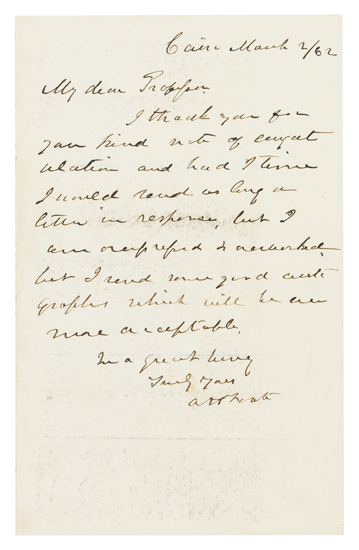 Cairo March 2/62
My dear Professor
I thank you for
your kind note of congrat
ulation and had I time
I would send as long a
letter in response, but I
am oversped & overworked
but I send some good auto
graphs which will be even
more acceptable.
In a great hurry
Truly Yours
A H Foote